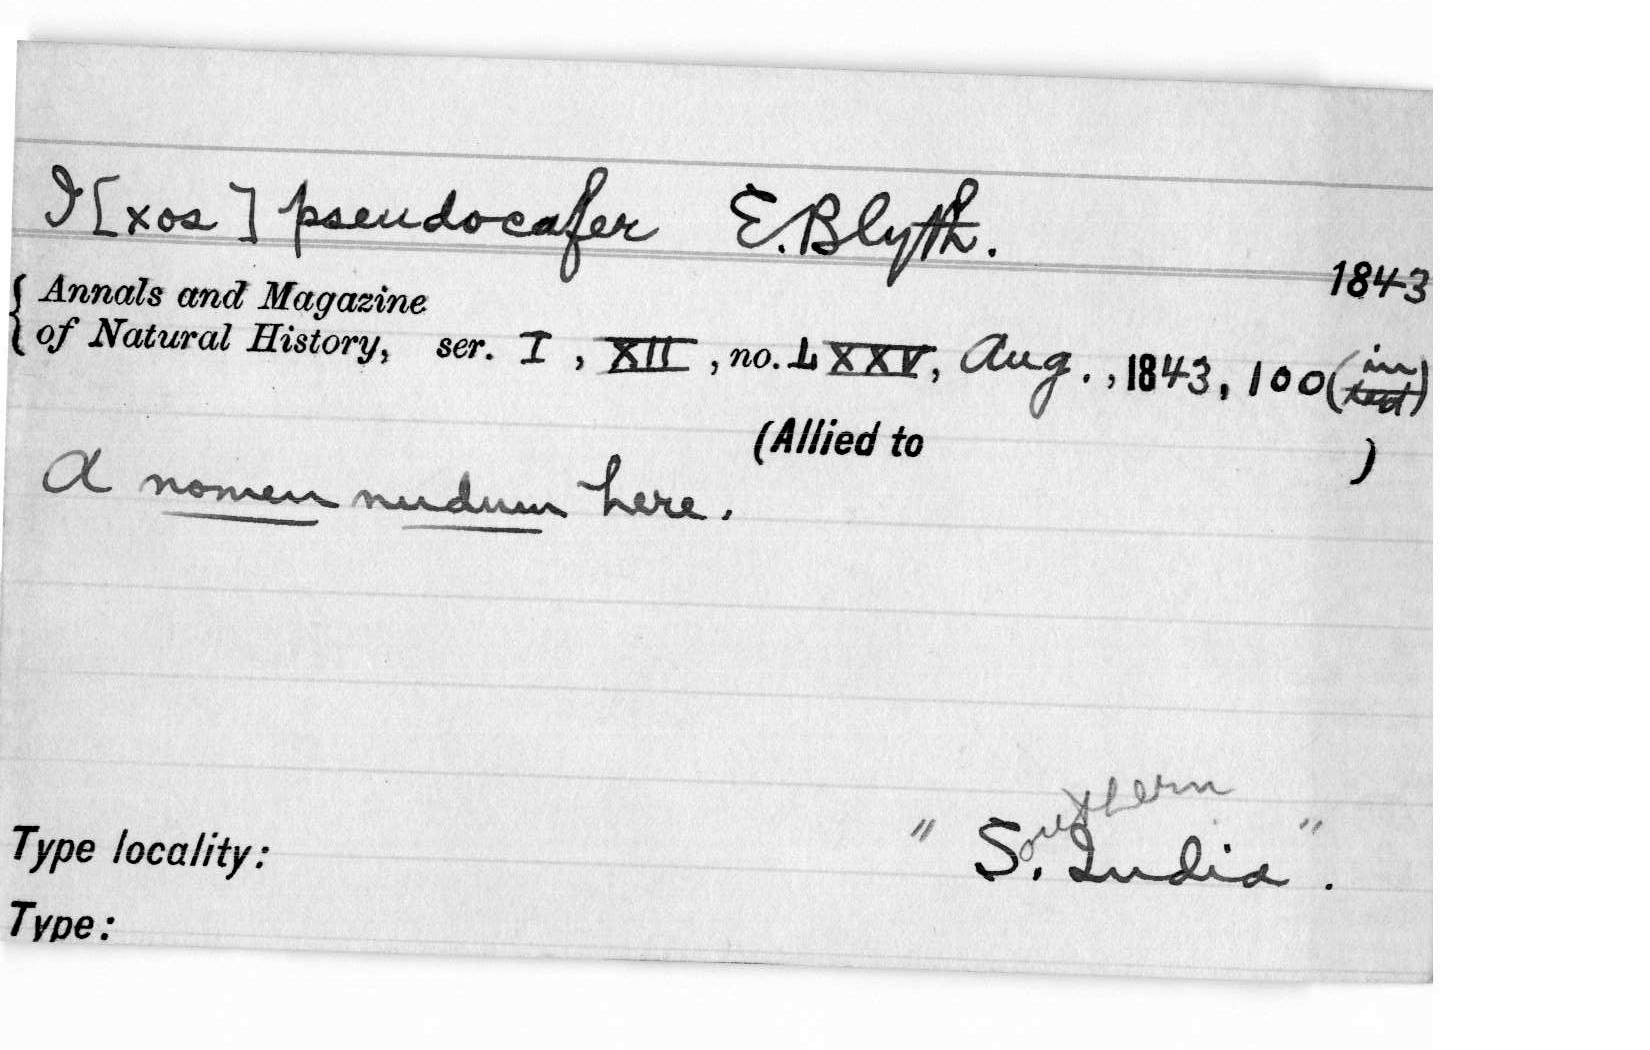 I[xos] pseudocafer E.Blyth.
1843
Annals and Magazine
of Natural History, ser. I, XII, no. LXXV, Aug., 1843, 100 (in text)
(Allied to )
A nomen nudum here.
Type locality: "S. Southern India".
Type: